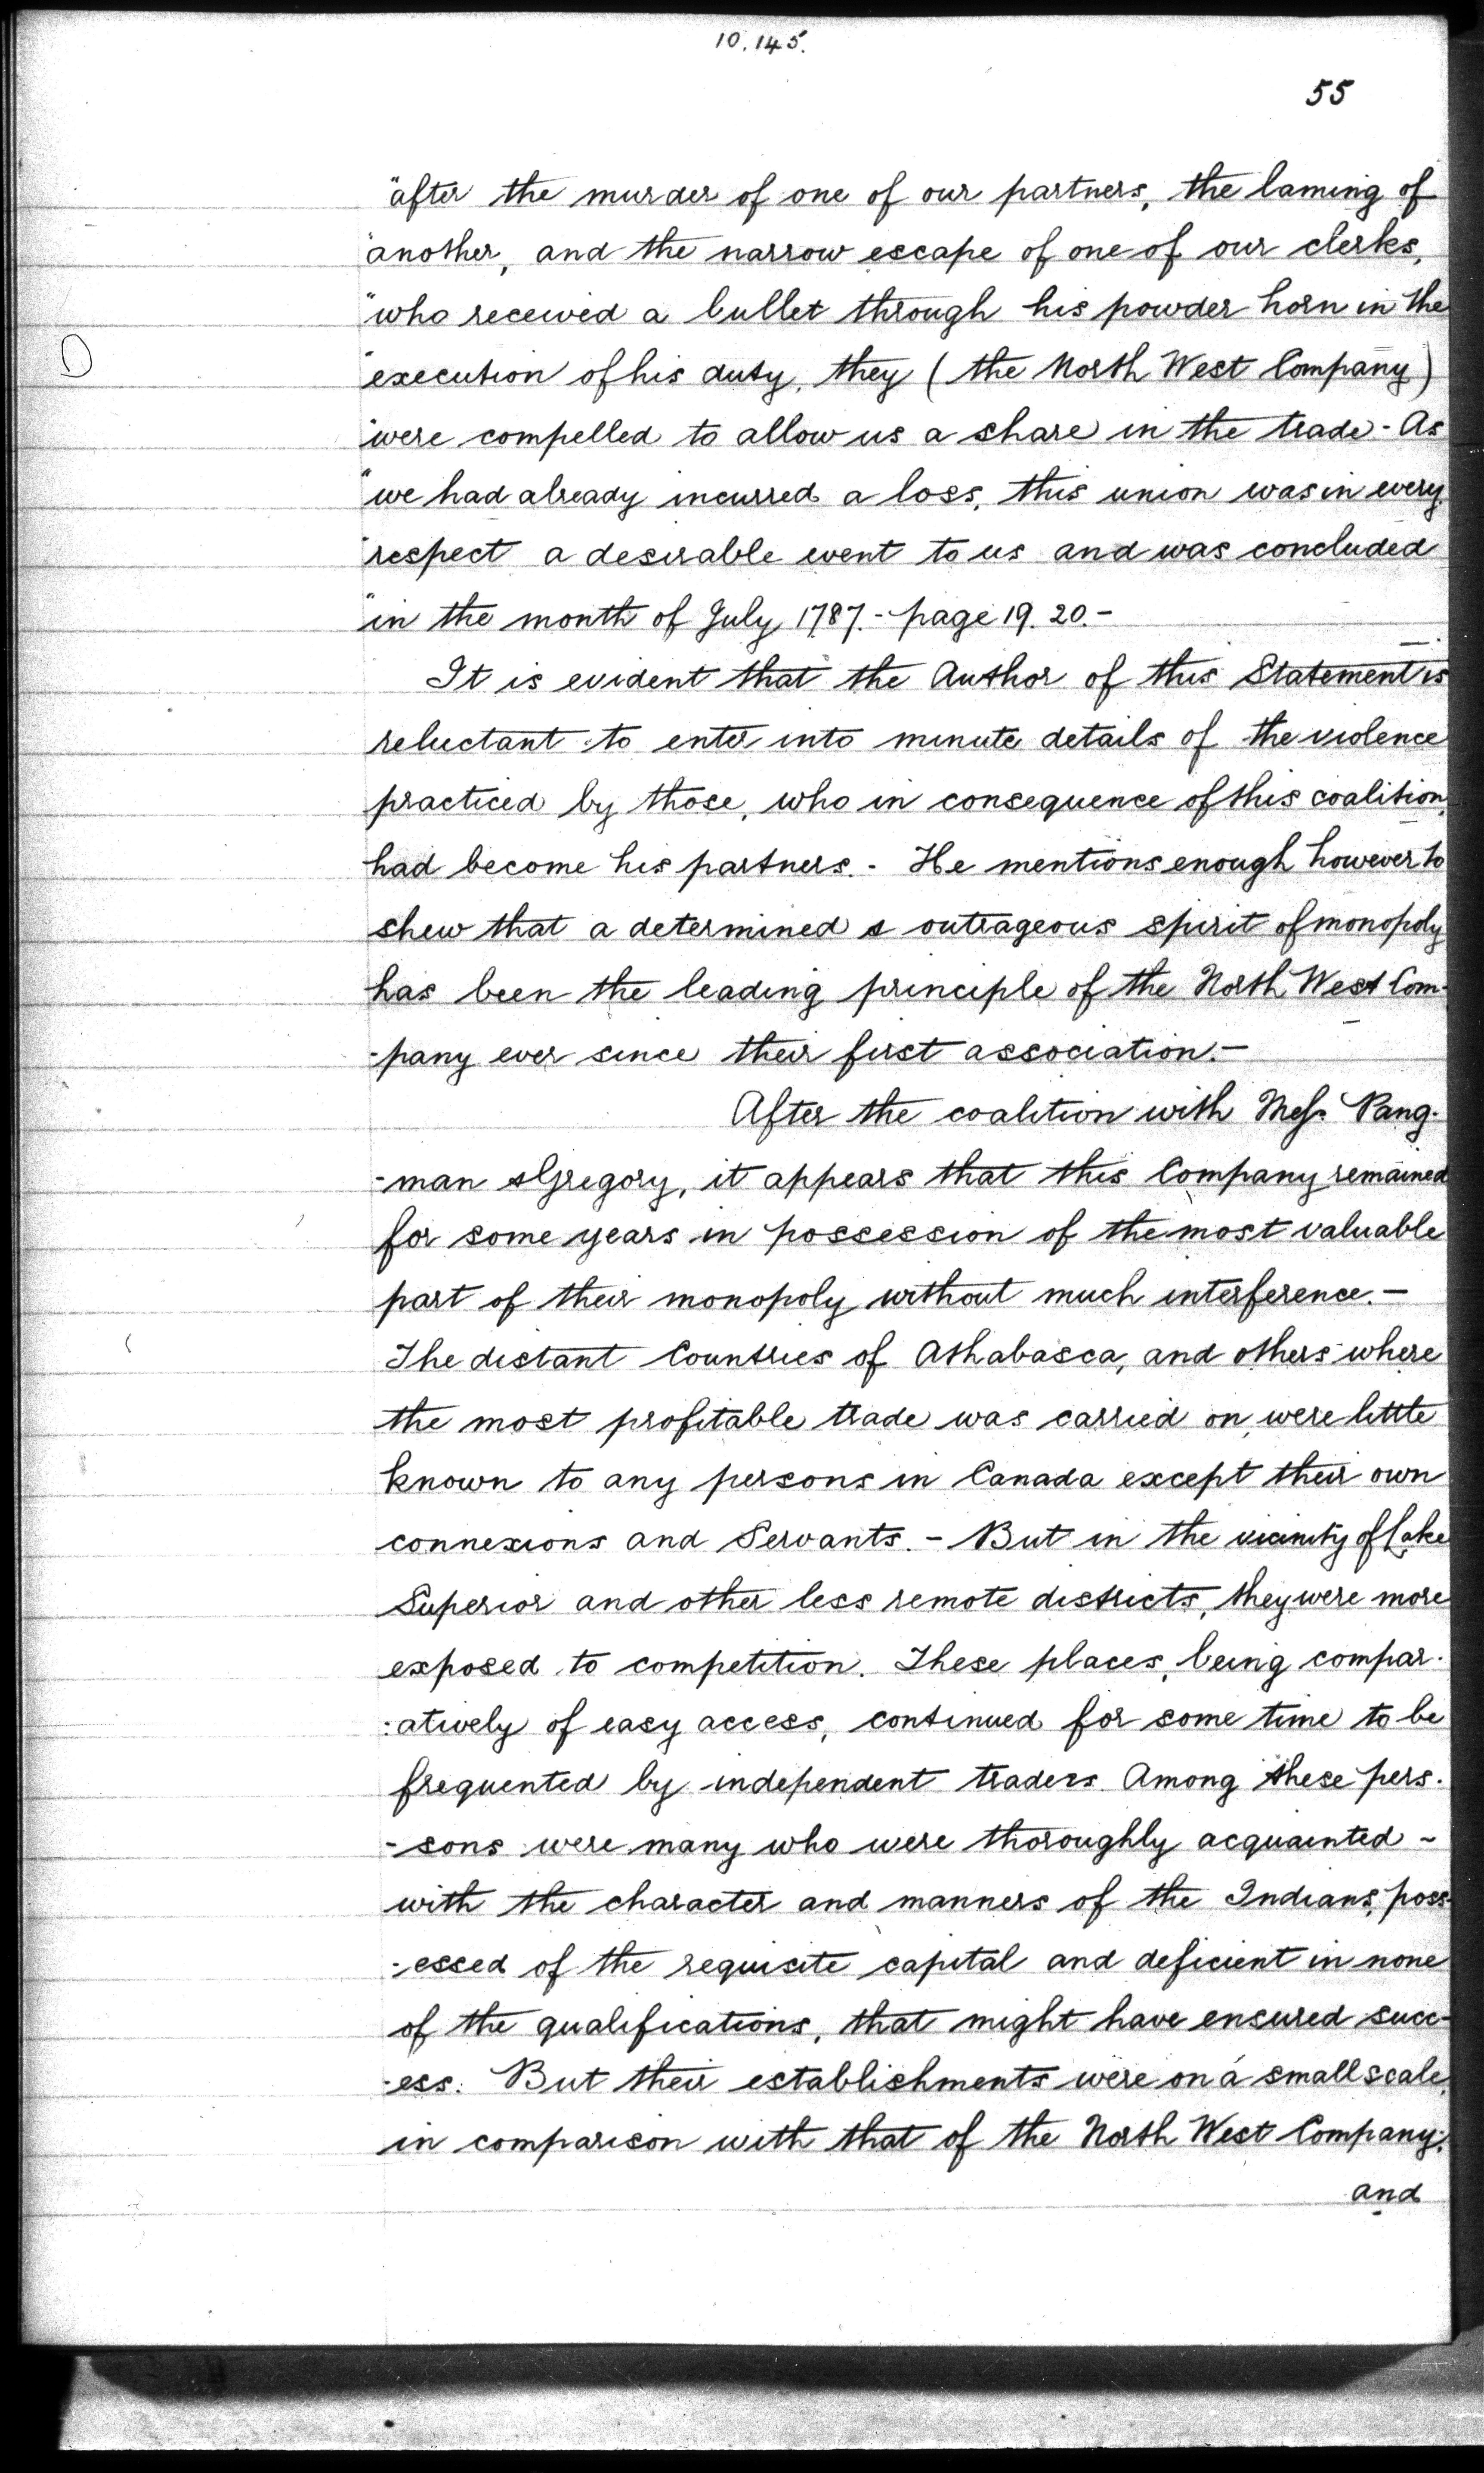 10.145.
55
"after the murder of one of our partners, the laming of
"another, and the narrow escape of one of our clerks,
"who received a bullet through his powder horn in the
"execution of his duty, they (the North West Company)
"were compelled to allow us a share in the trade - As
"we had already incurred a loss, this union was in every
"respect a desirable event to us and was concluded
"in the month of July 1787. - page 19. 20. -
It is evident that the Author of this Statement is
reluctant to enter into minute details of the violence
practiced by those, who in consequence of this coalition,
had become his partners. - He mentions enough however to
shew that a determined & outrageous spirit of monopoly
has been the leading principle of the North West Com-
-pany ever since their first association. -
After the coalition with Messrs. Pang-
-man & Gregory, it appears that this Company remained
for some years in possession of the most valuable
part of their monopoly without much interference. -
The distant Countries of Athabasca, and others where
the most profitable trade was carried on, were little
known to any persons in Canada except their own
connexions and Servants. - But in the vicinity of Lake
Superior and other less remote districts, they were more
exposed to competition. These places, being compar-
:atively of easy access, continued for some time to be
frequented by independent traders. Among these pers-
-sons were many who were thoroughly acquainted -
with the character and manners of the Indians, poss-
-essed of the requisite capital and deficient in none
of the qualifications, that might have ensured succ-
-ess. But their establishments were on a small scale,
in comparison with that of the North West Company;
and